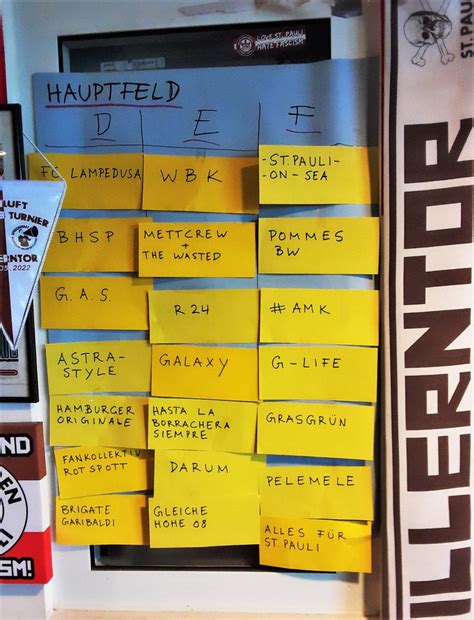 LOVE ST. PAULI
HATE FASCISM
ST. PAULI
HAUPTFELD
D E F
FC LAMPEDUSA
WBK
-ST.PAULI-
-ON-SEA
BHSP
METTCREW
+
THE WASTED
POMMES
BW
G.A.S.
R24
#AMK
ASTRA-
STYLE
GALAXY
G-LIFE
HAMBURGER
ORIGINALE
HASTA LA
BORRACHERA
SIEMPRE
GRASGRÜN
FANKOLLEKTIV
ROTSPOTT
DARUM
PELEMELE
BRIGATE
GARIBALDI
GLEICHE
HÖHE 08
ALLES FÜR
ST. PAULI
LUFT
TURNIER
ERNTOR
2022
ILLERNTOR